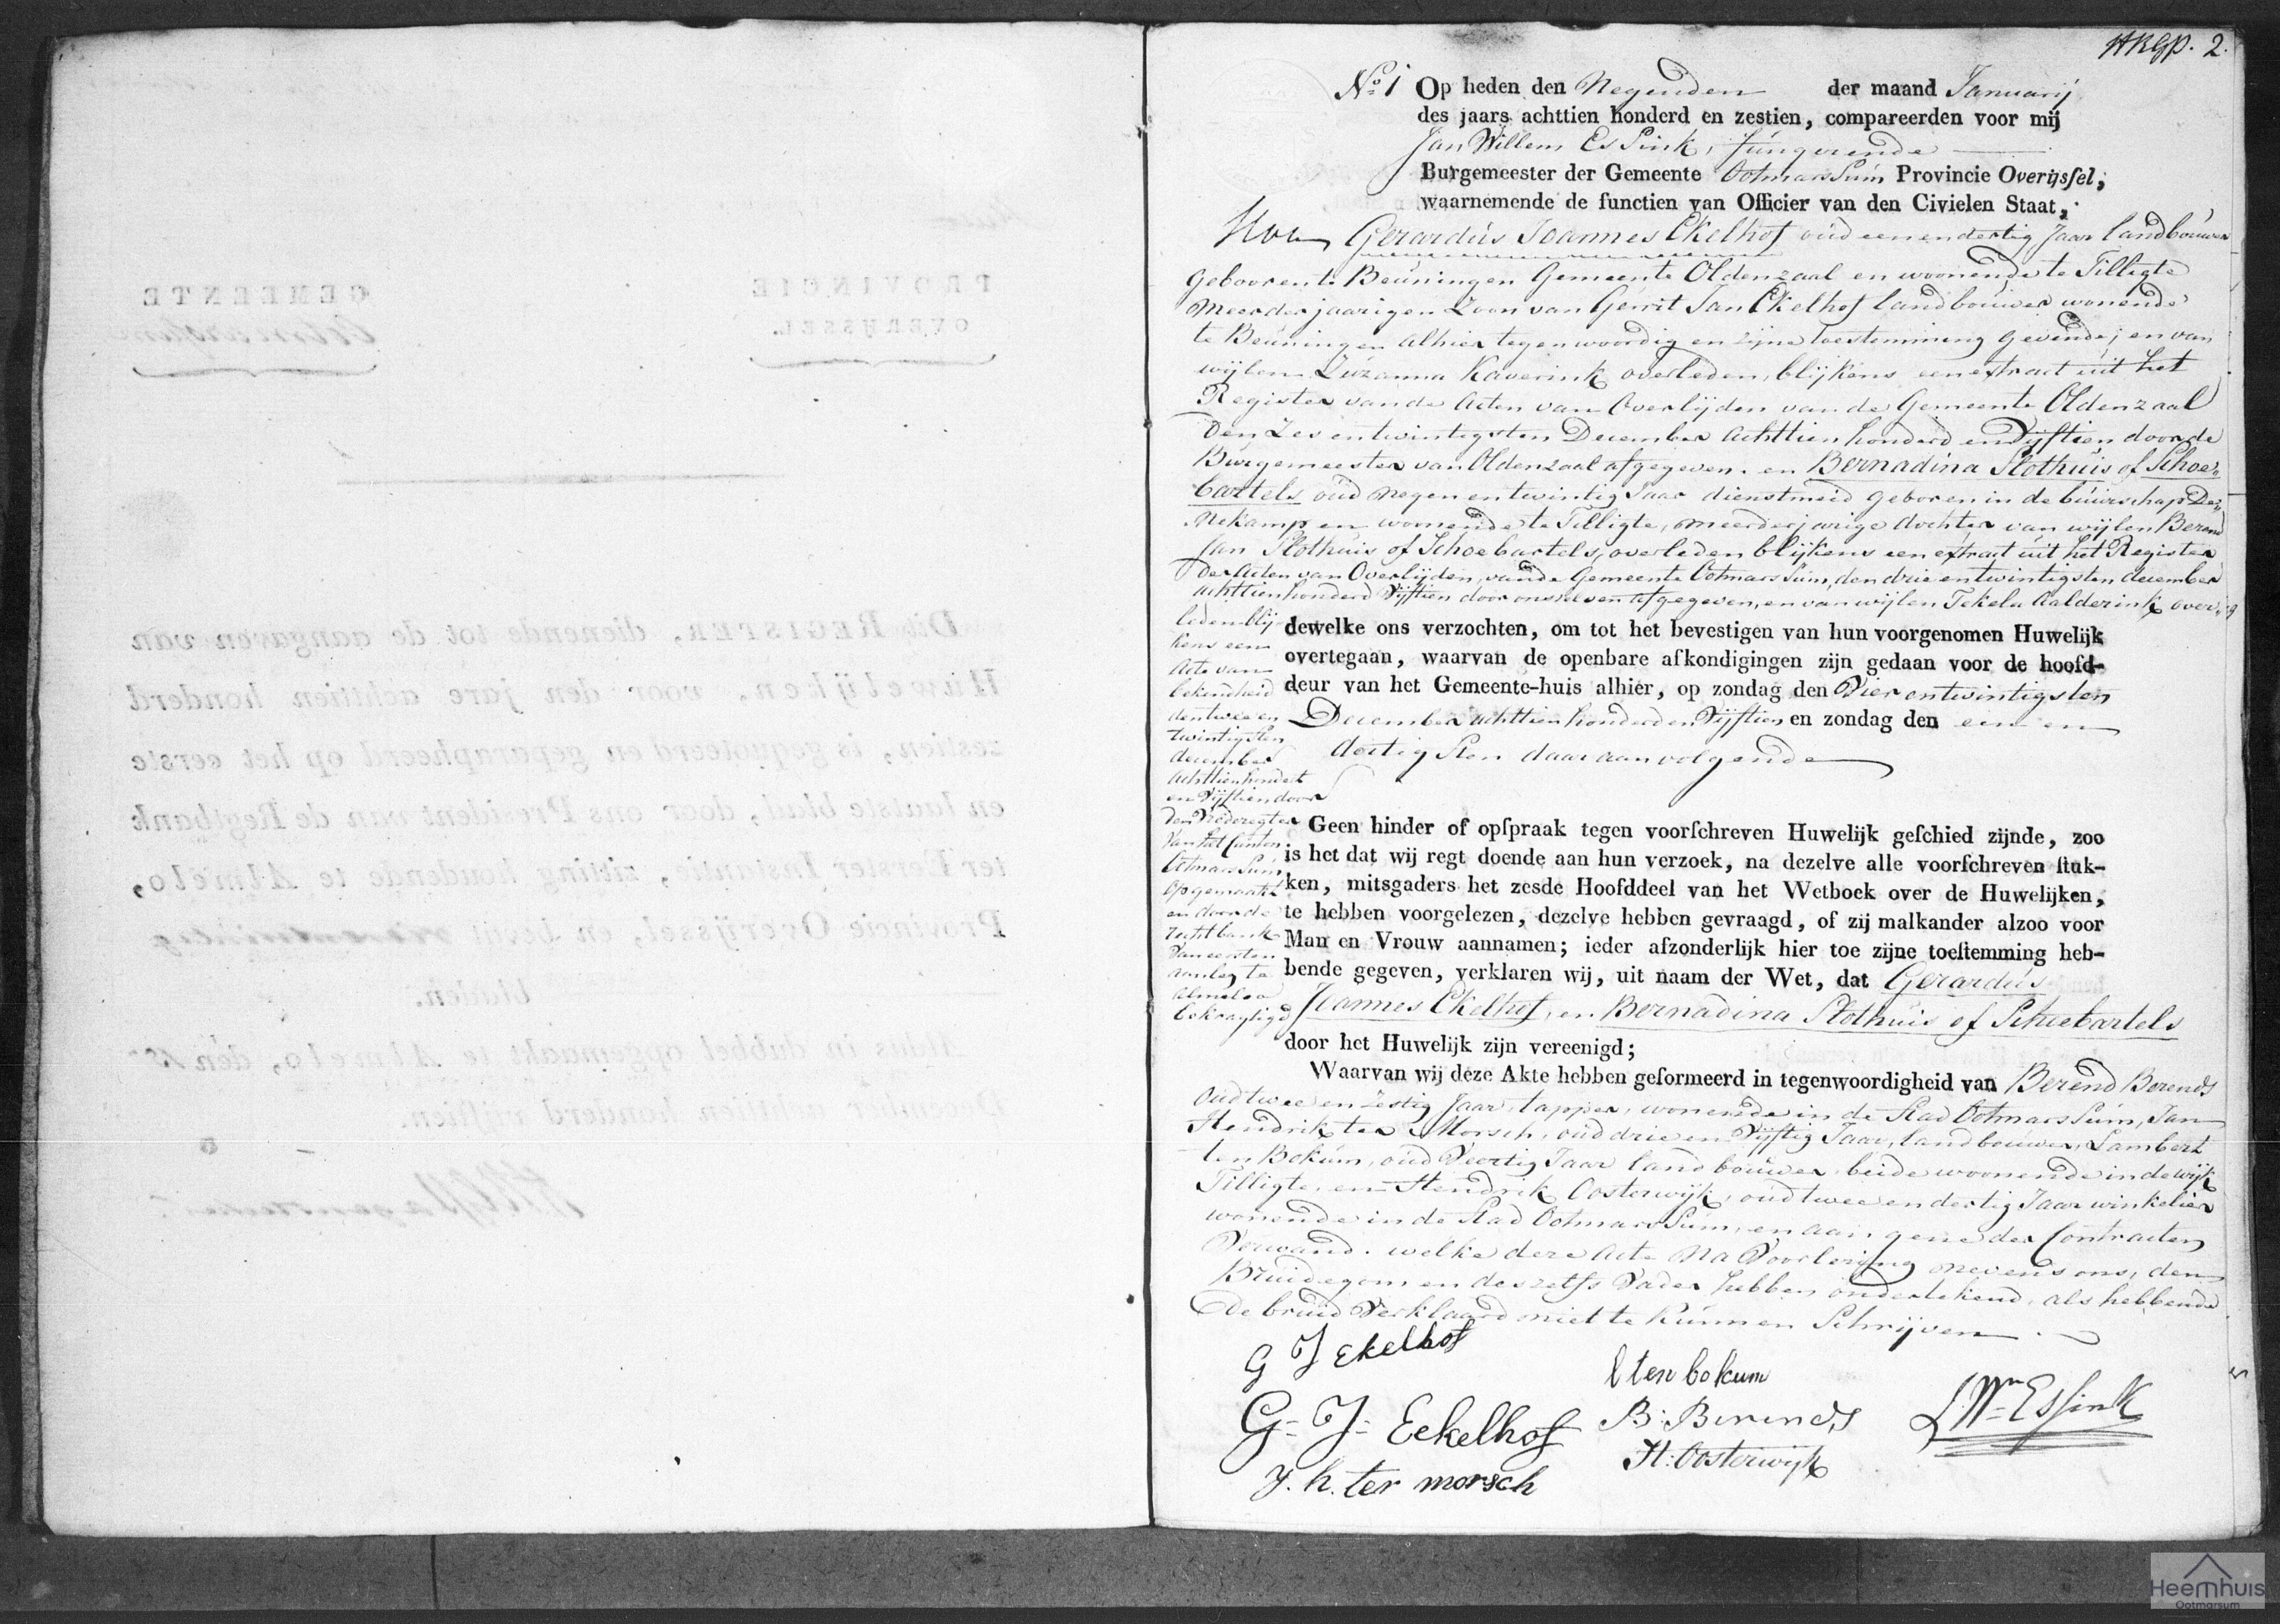 HRGP. 2.
No. 1 Op heden den Negenden der maand Januarij
des jaars achttien honderd en zestien, compareerden voor mij
Jan Willem Essink, fungerende
Burgemeester der Gemeente Ootmarssum Provincie Overijssel,
waarnemende de functien van Officier van den Civielen Staat,
Gerardus Joannes Ekelhof oud een en dertig Jaar landbouwer
Gebooren te Beuningen Gemeente Oldenzaal en woonende te Tilligte
Meerderjaarigen Zoon van Gerrit Jan Ekelhof landbouwer wonende
te Beuningen alhier tegenwoordig en zijne toestemming gevende; en van
wijlen Zuzanna Kaverink overleden, blijkens een extract uit het
Register van de Acten van Overlijden van de Gemeente Oldenzaal
den Zes en twintigsten December achttien honderd en Vijftien door de
Burgemeester van Oldenzaal afgegeven. en Bernadina Slothuis of Schoe-
bartels oud negen en twintig Jaar dienstmeid geboren in de buurschap De-
nekamp en woonende te Tilligte, meerderjarige dochter van wijlen Berend
Jan Slothuis of Schoebartels, overleden blijkens een extract uit het Register
der Acten van Overlijden, van de Gemeente Ootmarssum, den drie en twintigsten december
achttienhonderd Vijftien door onszelven afgegeven, en van wijlen Tekela Aalderink over-
leden blij-
kens een
Acte van
bekendheid
den twee en
twintigsten
december
achttienhondert
en Vijftien door
den Vrederegter
van het Canton
Ootmarssum
opgemaakt
en door de
rechtbank
van eersten
aanleg te
Almeloo
bekragtigd
dewelke ons verzochten, om tot het bevestigen van hun voorgenomen Huwelijk
overtegaan, waarvan de openbare afkondigingen zijn gedaan voor de hoofd-
deur van het Gemeente-huis alhier, op zondag den Vier en twintigsten
December achttien honderd en Vijftien en zondag den een en
dertigsten daar aan volgende
Geen hinder of opspraak tegen voorschreven Huwelijk geschied zijnde, zoo
is het dat wij regt doende aan hun verzoek, na dezelve alle voorschreven stuk-
ken, mitsgaders het zesde Hoofddeel van het Wetboek over de Huwelijken,
te hebben voorgelezen, dezelve hebben gevraagd, of zij malkander alzoo voor
Man en Vrouw aannamen; ieder afzonderlijk hier toe zijne toestemming heb-
bende gegeven, verklaren wij, uit naam der Wet, dat Gerardus
Joannes Ekelhof, en Bernadina Slothuis of Schoebartels
door het Huwelijk zijn vereenigd;
Waarvan wij deze Akte hebben geformeerd in tegenwoordigheid van Berend Berends
Oud twee en zestig Jaar, tapper, wonende in de Stad Ootmarssum, Jan
Hendrik ter Morsch, oud drie en Vijftig Jaar, landbouwer, Lambert
ten Bokum, oud Veertig Jaar landbouwer beide woonende in de wijk
Tilligte, en Hendrik Oosterwijk, oud twee en dertig Jaar winkelier
wonende in de Stad Ootmarssum, en aan geene der Contracten
Verwand. welke deze Acte na Voorlezing nevens ons, den
Bruidegom en deszelfs Vader hebben ondertekend, als hebbende
De bruid Verklaard niet te kunnen Schrijven.
G J Ekelhof
l ten bokum
G=J= Eekelhof
B: Berends
J. Wm Essink
H: Oosterwijk
J. h. ter morsch
GEMEENTE
PROVINCIE
OVERIJSSEL.
Dit REGISTER, dienende tot de aangaven van
Huwelijken, voor den jare achttien honderd
zestien, is gequoteerd en geparapheerd op het eerste
en laatste blad, door ons President van de Regtbank
ter Eerster Instantie, zitting houdende te Almelo,
Provincie Overijssel, en bevat
bladen.
Aldus in dubbel opgemaakt te Almelo, den 15
December achttien honderd vijftien.
Heemhuis
Ootmarsum